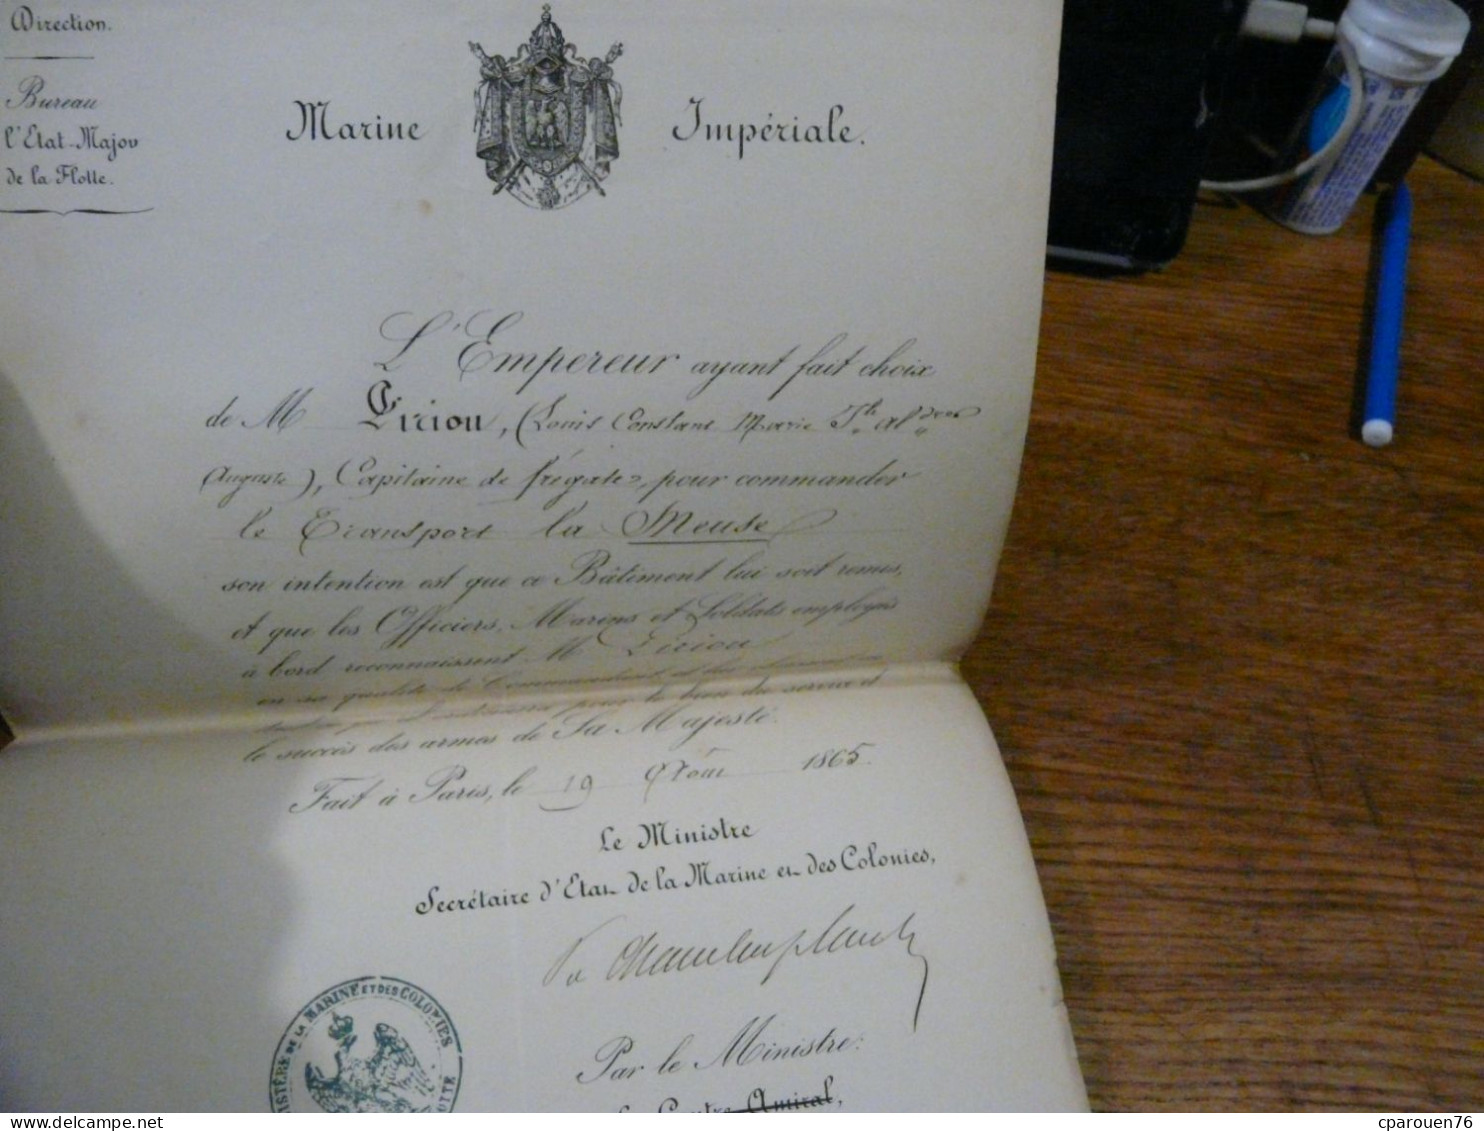 Direction.
Bureau
l'Etat-Major
de la Flotte.
Marine Impériale.
L'Empereur ayant fait choix
de M Lirion, (Louis Constant Marie Jh. Aldre
Auguste), Capitaine de frégate, pour commander
le Transport la Meuse
son intention est que ce Bâtiment lui soit remis,
et que les Officiers, Marins et Soldats employés
à bord reconnaissent M Lirion
en sa qualité de Commandant
pour le bien du service et
le succès des armes de Sa Majesté.
Fait à Paris, le 19 Août 1865.
Le Ministre
Secrétaire d'Etat de la Marine et des Colonies,
Par le Ministre:
Le Contre-Amiral,
MINISTÈRE DE LA MARINE ET DES COLONIES
cparouen76